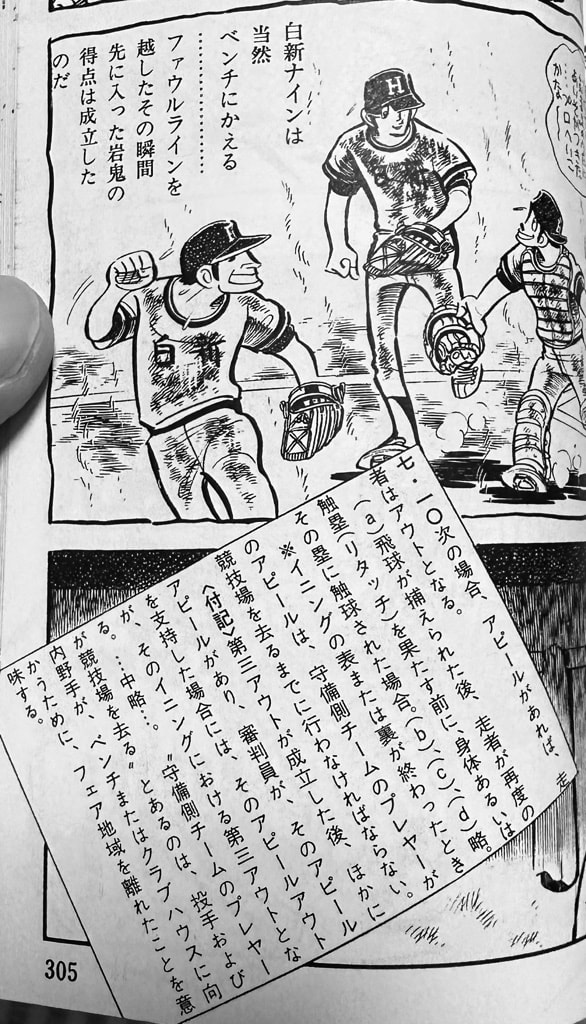 白新ナインは
当然
ベンチにかえる
…………………
ファウルラインを
越したその瞬間
先に入った岩鬼の
得点は成立した
のだ
H
H
白新
七・一〇次の場合、アピールがあれば、走
者はアウトとなる。
(a)飛球が捕えられた後、走者が再度の
触塁(リタッチ)を果たす前に、身体あるいは
その塁に触球された場合。(b)、(c)、(d)略。
※イニングの表または裏が終わったとき
のアピールは、守備側チームのプレヤーが
競技場を去るまでに行わなければならない。
〈付記〉第三アウトが成立した後、ほかに
アピールがあり、審判員が、そのアピール
を支持した場合には、そのアピールアウト
が、そのイニングにおける第三アウトとな
る。…中略…。〝守備側チームのプレヤー
が競技場を去る〟とあるのは、投手および
内野手が、ベンチまたはクラブハウスに向
かうために、フェア地域を離れたことを意
味する。
305